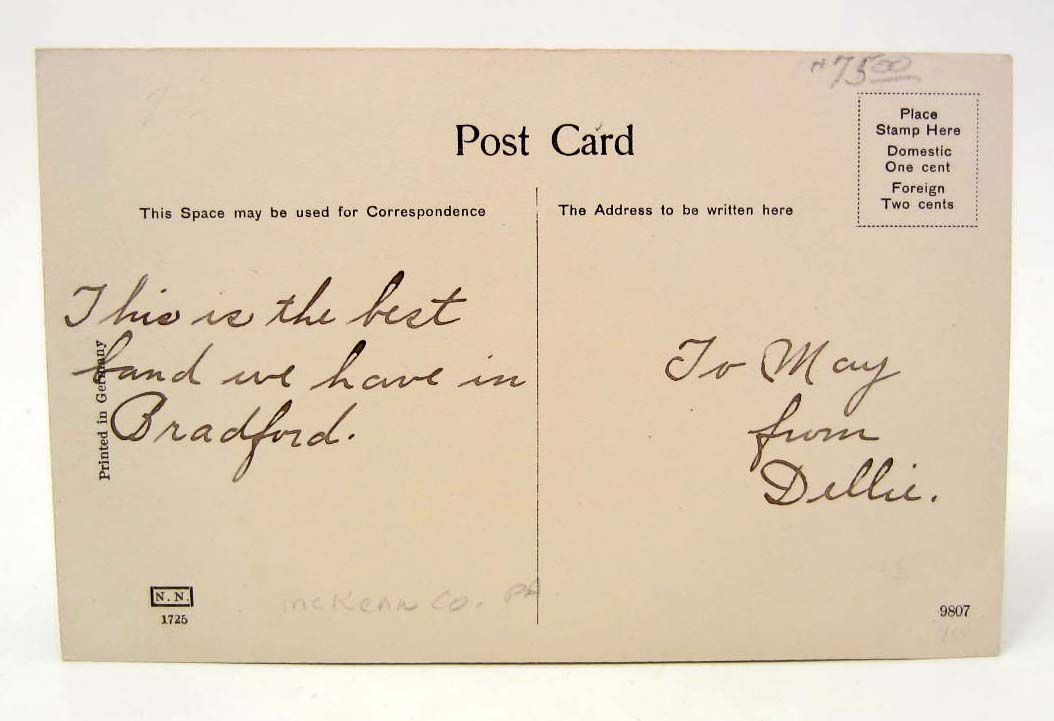 #75.00
Post Card
Place
Stamp Here
Domestic
One cent
Foreign
Two cents
This Space may be used for Correspondence
The Address to be written here
This is the best
band we have in
Bradford.
To May
from
Dellie.
Printed in Germany
N. N.
1725
McKean Co. PA
9807